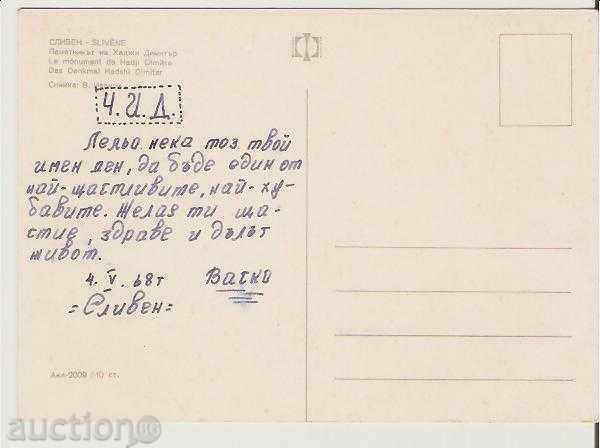 СЛИВЕН - SLIVÈNE
Паметникът на Хаджи Димитър
Le monument de Hadji Dimitre
Das Denkmal Hadshi Dimiter
Снимка: В.
Ч.И.Д.
Лельо нека тоз твой
имен ден, да бъде един от
най-щастливите, най-ху-
бавите. Желая ти ща-
стие, здраве и дълъг
живот.
4. V. 68 г Васко
=Сливен=
Акл-2009 /10 ст.
auction.BG